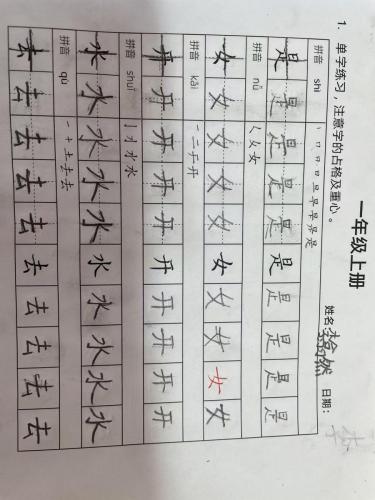 一年级上册
姓名: 日期:
1. 单字练习,注意字的占格及重心。
拼音 shì 丨 冂 日 日 旦 早 早 昰 是
是 是 是 是 是 是 是 是 是 是
拼音 nǚ 𡿨 乂 女
女 女 女 女 女 女 女 女 女 女
拼音 kāi 一 二 于 开
开 开 开 开 开 开 开 开 开 开
拼音 shuǐ 亅 水
水 水 水 水 水 水 水 水 水 水
拼音 qù 一 十 土 去 去
去 去 去 去 去 去 去 去 去 去